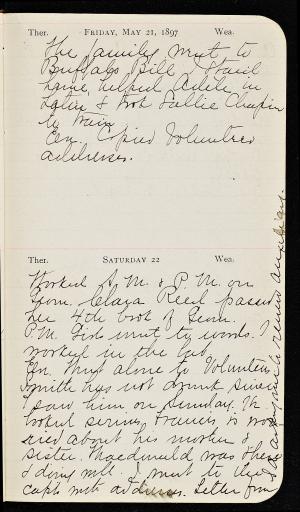 Ther. FRIDAY, MAY 21, 1897 Wea.
The family went to
Buffalo Bill. I staid
home, helped Adele in
Latin & took Sallie Chapin
to train.
Ev. Copied Volunteer
addresses.
Ther. SATURDAY 22 Wea.
Worked A.M. & P.M. on
Geom. Clara Reed passed
her 4th book of Geom.
P.M. Girls went to words. I
worked in the
Ev. Went alone to Volunteers
Smith has not drunk since
I saw him on Sunday. He
looked serious. Francis is wor-
ried about his mother &
sister. Macdonald was there
& doing well. I went to the
capt. with addresses. Letter from